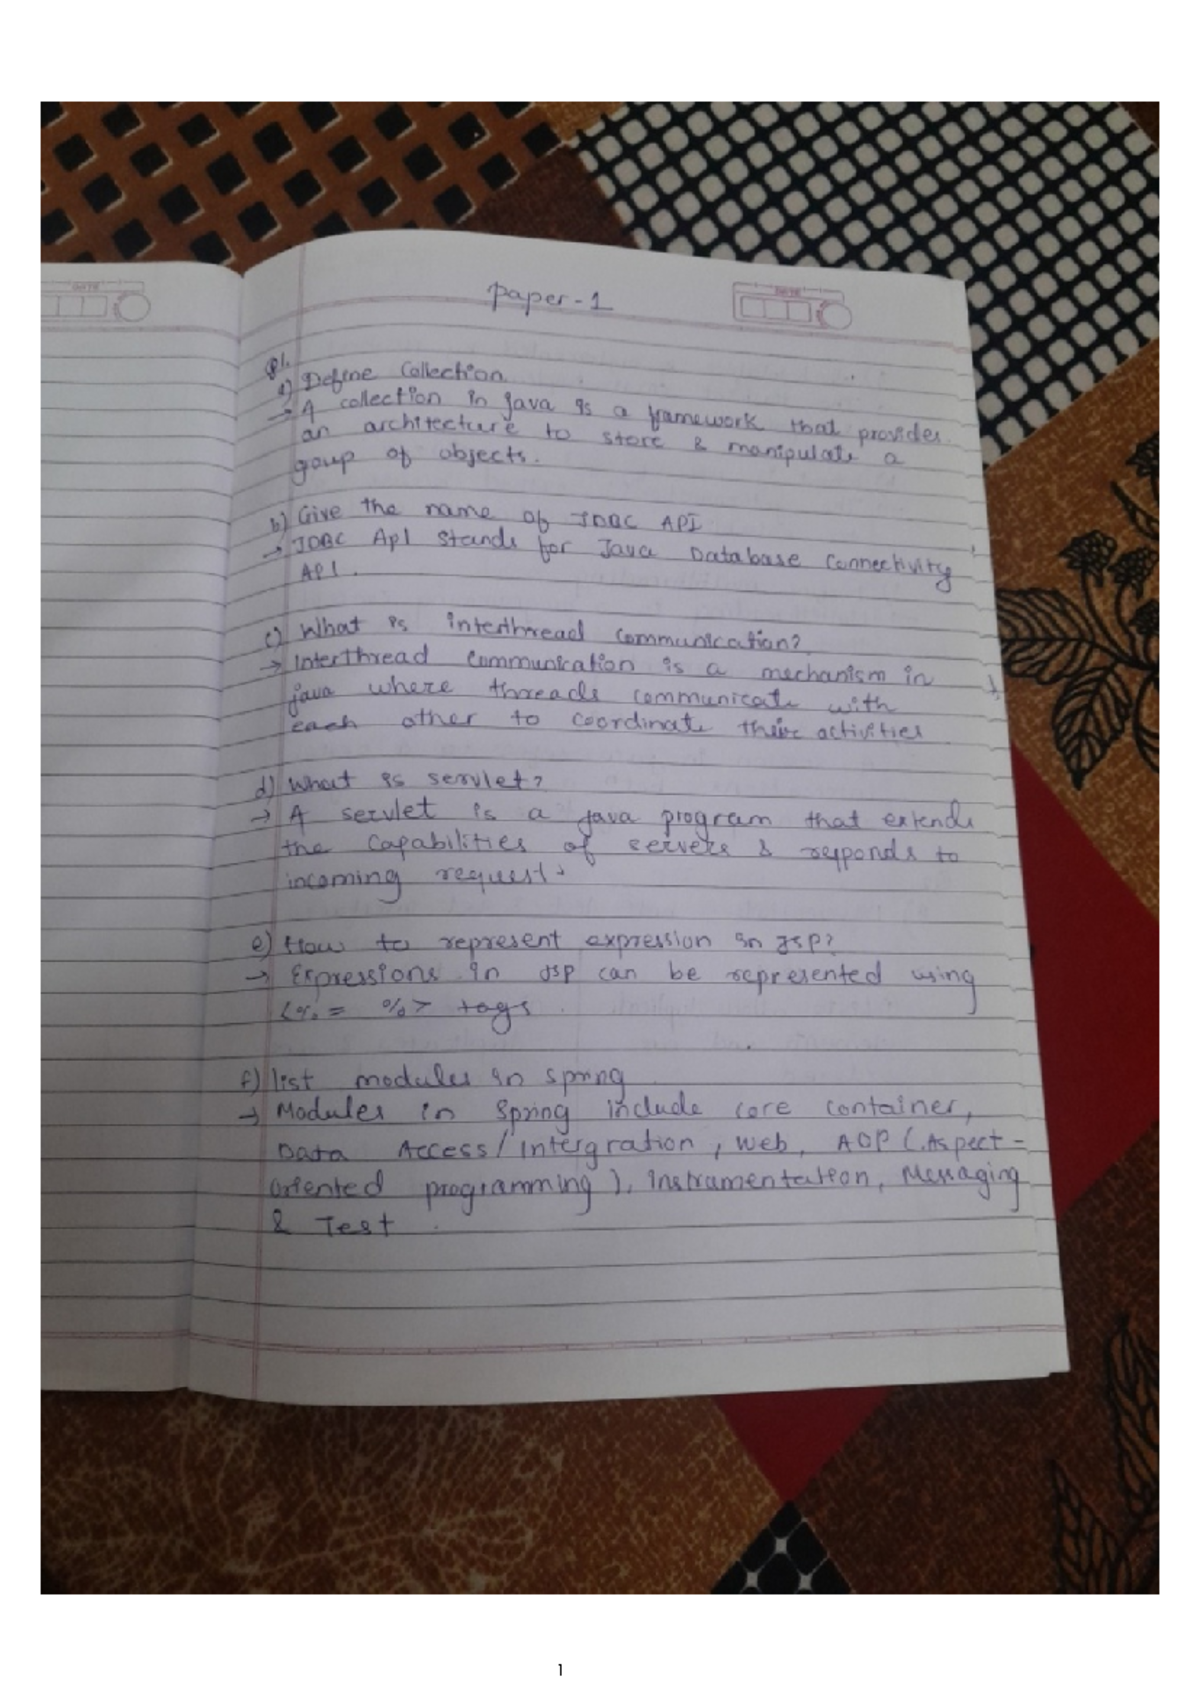 DATE
DATE
Paper-1
Q1.
a) Define Collection
→ A collection in java is a framework that provides
an architecture to store & manipulate a
goup of objects.
b) Give the name of JDBC API
→ JDBC API stands for Java Database Connectivity
API.
c) What is interthread communication?
→ Interthread communication is a mechanism in
java where threads communicate with
each other to coordinate their activities
d) What is servlet?
→ A servlet is a java program that extends
the capabilities of servers & responds to
incoming request.
e) How to represent expression in JSP?
→ Expressions in JSP can be represented using
<%= %> tags.
f) list modules in spring
→ Modules in spring include core container,
Data Access/Intergration, web, AOP (Aspect-
oriented programming), instramentation, Messaging
& Test.
1